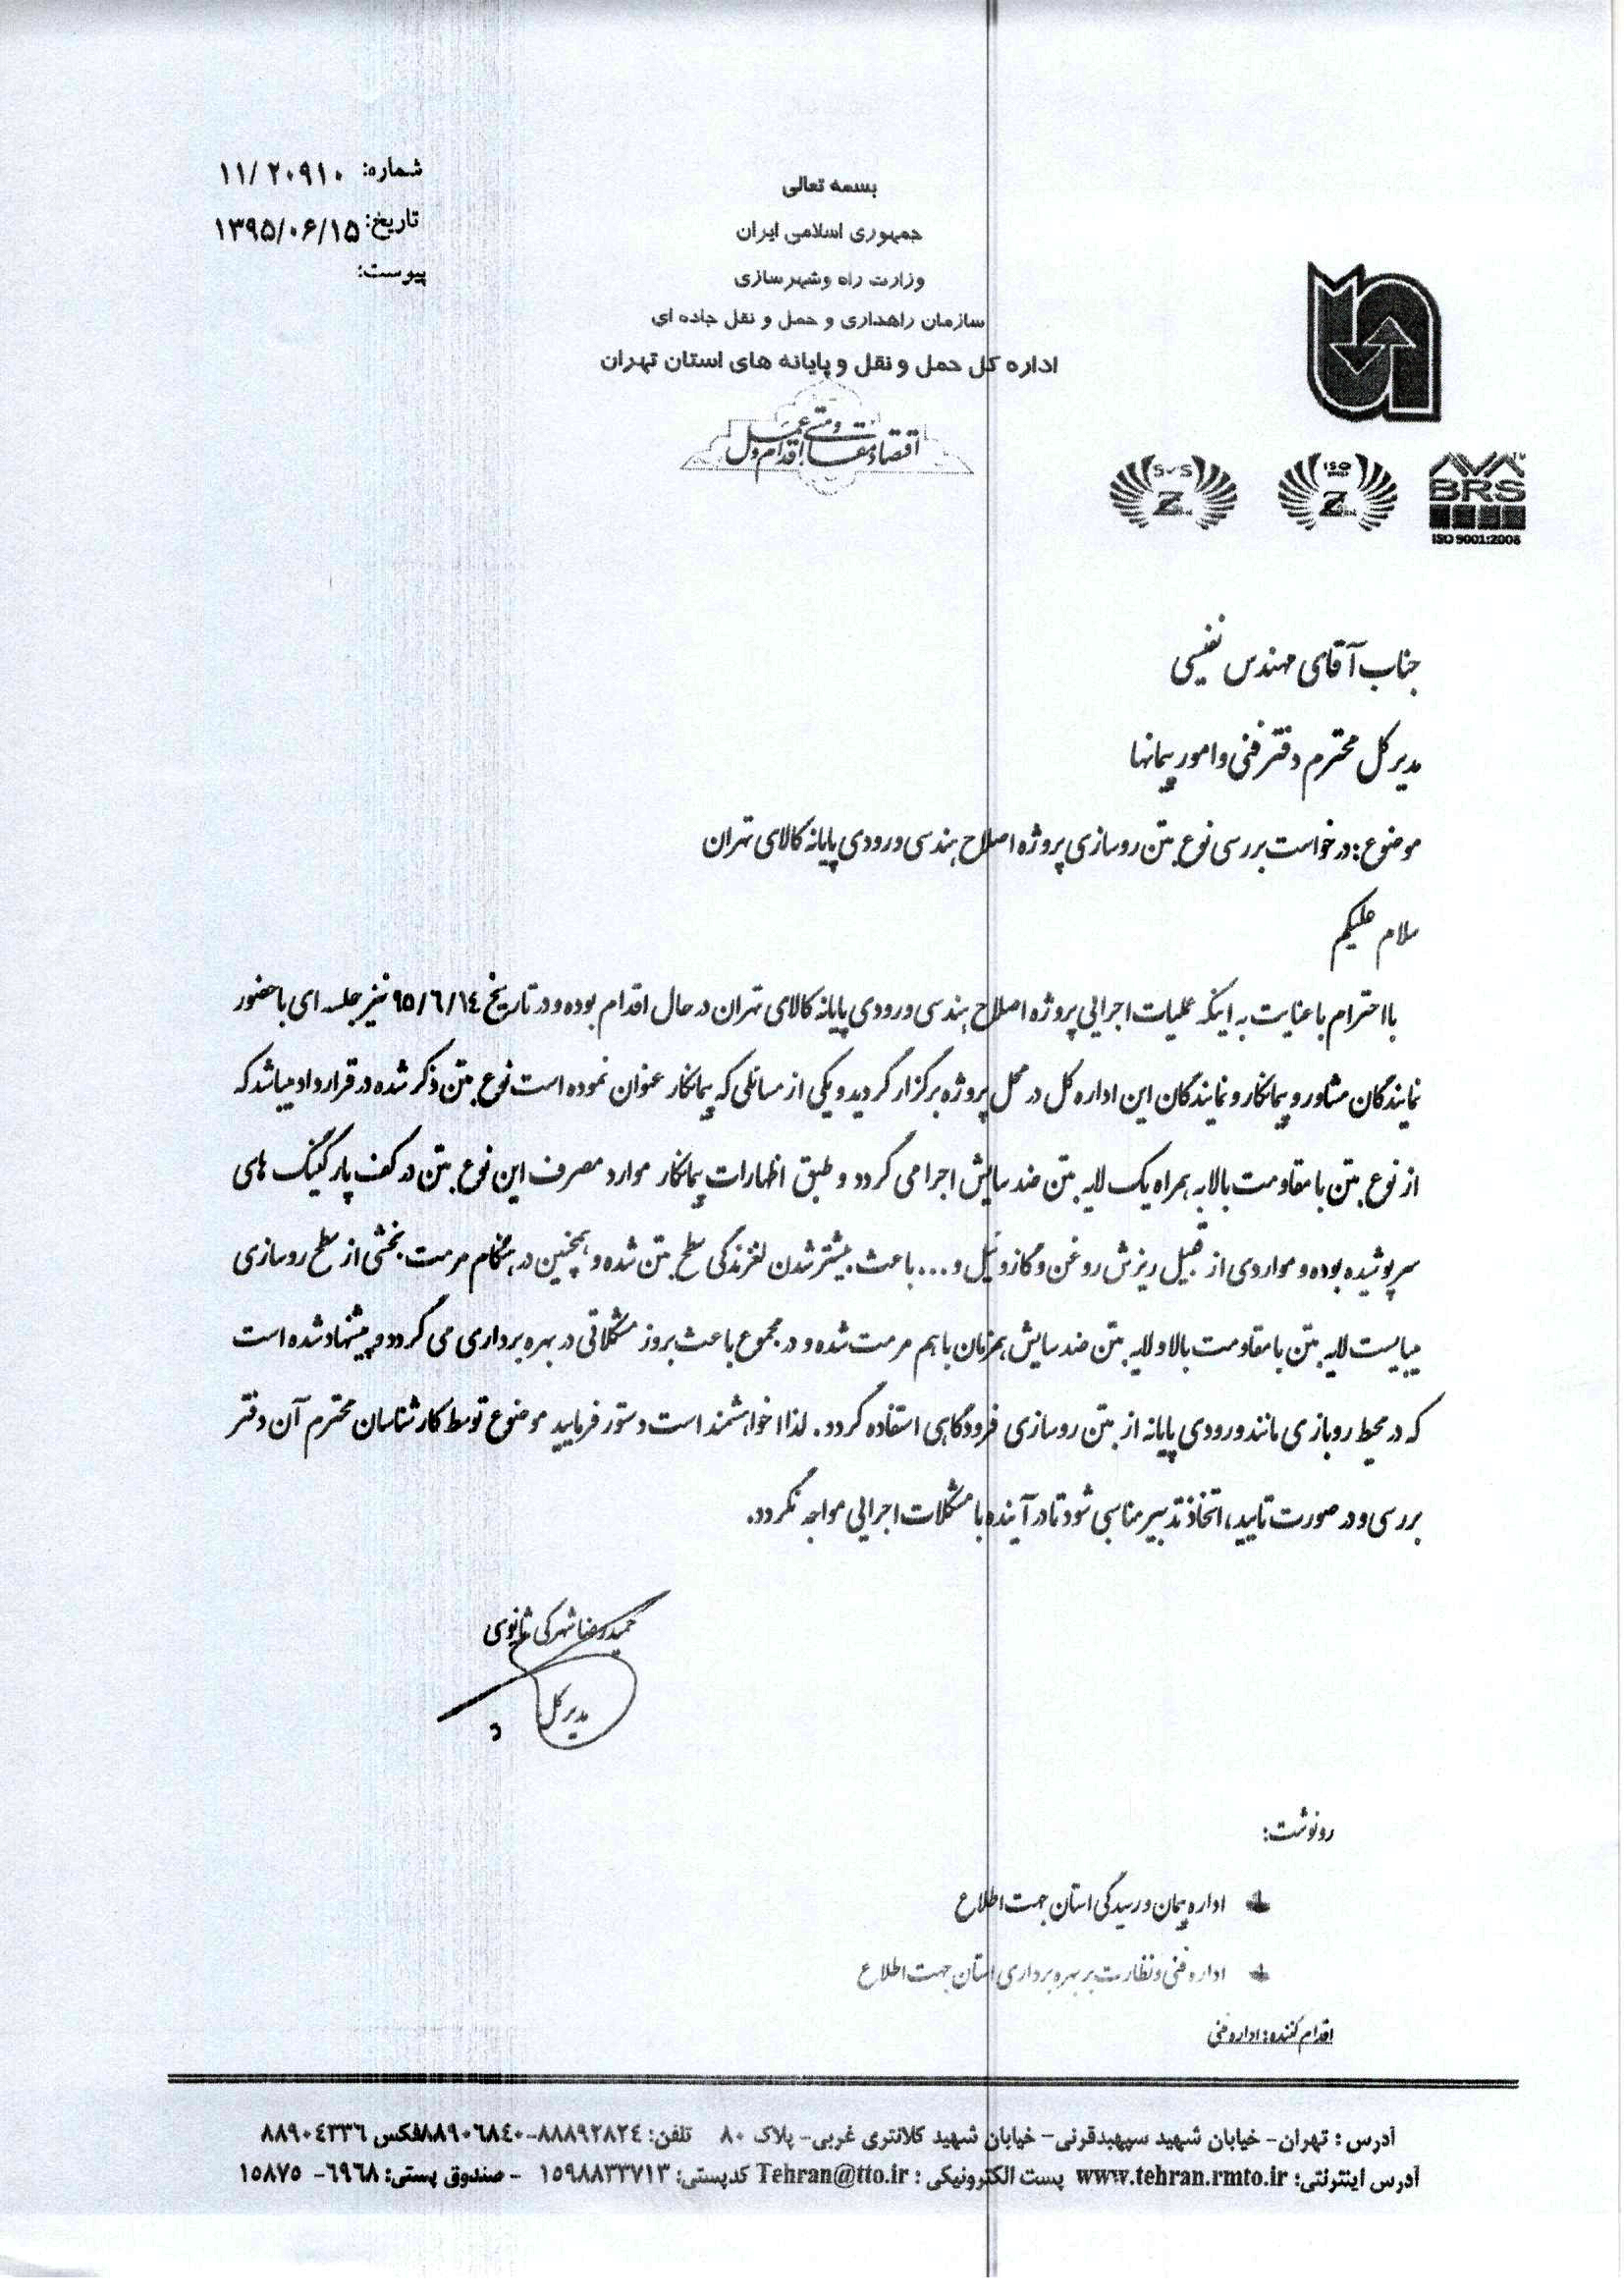 شماره: ۱۱/۲۰۹۱۰
تاریخ: ۱۳۹۵/۰۶/۱۵
پیوست:
بسمه تعالی
جمهوری اسلامی ایران
وزارت راه وشهرسازی
سازمان راهداری و حمل و نقل جاده ای
اداره کل حمل و نقل و پایانه های استان تهران
اقتصاد مقاومتی اقدام و عمل
ISO
BRS
ISO 9001:2008
جناب آقای مهندس نفیسی
مدیر کل محترم دفتر فنی و امور پیمانها
موضوع: درخواست بررسی نوع بتن روسازی پروژه اصلاح هندسی ورودی پایانه کالای تهران
سلام علیکم
با احترام با عنایت به اینکه عملیات اجرایی پروژه اصلاح هندسی ورودی پایانه کالای تهران در حال اقدام بوده و در تاریخ ۹۵/۶/۱۴ نیز جلسه ای با حضور
نمایندگان مشاور و پیمانکار و نمایندگان این اداره کل در محل پروژه برگزار گردید و یکی از مسائلی که پیمانکار عنوان نموده است نوع بتن ذکر شده در قرارداد میباشد که
از نوع بتن با مقاومت بالا به همراه یک لایه بتن ضد سایش اجرا می گردد و طبق اظهارات پیمانکار موارد مصرف این نوع بتن در کف پارکینگ های
سرپوشیده بوده و مواردی از قبیل ریزش روغن و گازوئیل و... باعث بیشتر شدن لغزندگی سطح بتن شده و همچنین در هنگام مرمت بخشی از سطح روسازی
میبایست لایه بتن با مقاومت بالا و لایه بتن ضد سایش همزمان با هم مرمت شده و در مجموع باعث بروز مشکلاتی در بهره برداری می گردد و پیشنهاد شده است
که در محیط روبازی مانند ورودی پایانه از بتن روسازی فرودگاهی استفاده گردد. لذا خواهشمند است دستور فرمایید موضوع توسط کارشناسان محترم آن دفتر
بررسی و در صورت تایید، اتخاذ تدبیر مناسبی شود تا در آینده با مشکلات اجرایی مواجه نگردد.
حمیدرضا شهرکی ثانوی
مدیر کل
رونوشت:
اداره پیمان و رسیدگی استان جهت اطلاع
اداره فنی و نظارت بر بهره برداری استان جهت اطلاع
اقدام کننده: اداره فنی
آدرس : تهران- خیابان شهید سپهبدقرنی- خیابان شهید کلانتری غربی- پلاک ۸۰ تلفن: ۸۸۸۹۲۸۲۴-۸۸۹۰۶۸۴۰فکس ۸۸۹۰۴۳۳۶
آدرس اینترنتی: www.tehran.rmto.ir پست الکترونیکی : Tehran@tto.ir کدپستی: ۱۵۹۸۸۳۳۷۱۳ - صندوق پستی: ۶۹۶۸- ۱۵۸۷۵